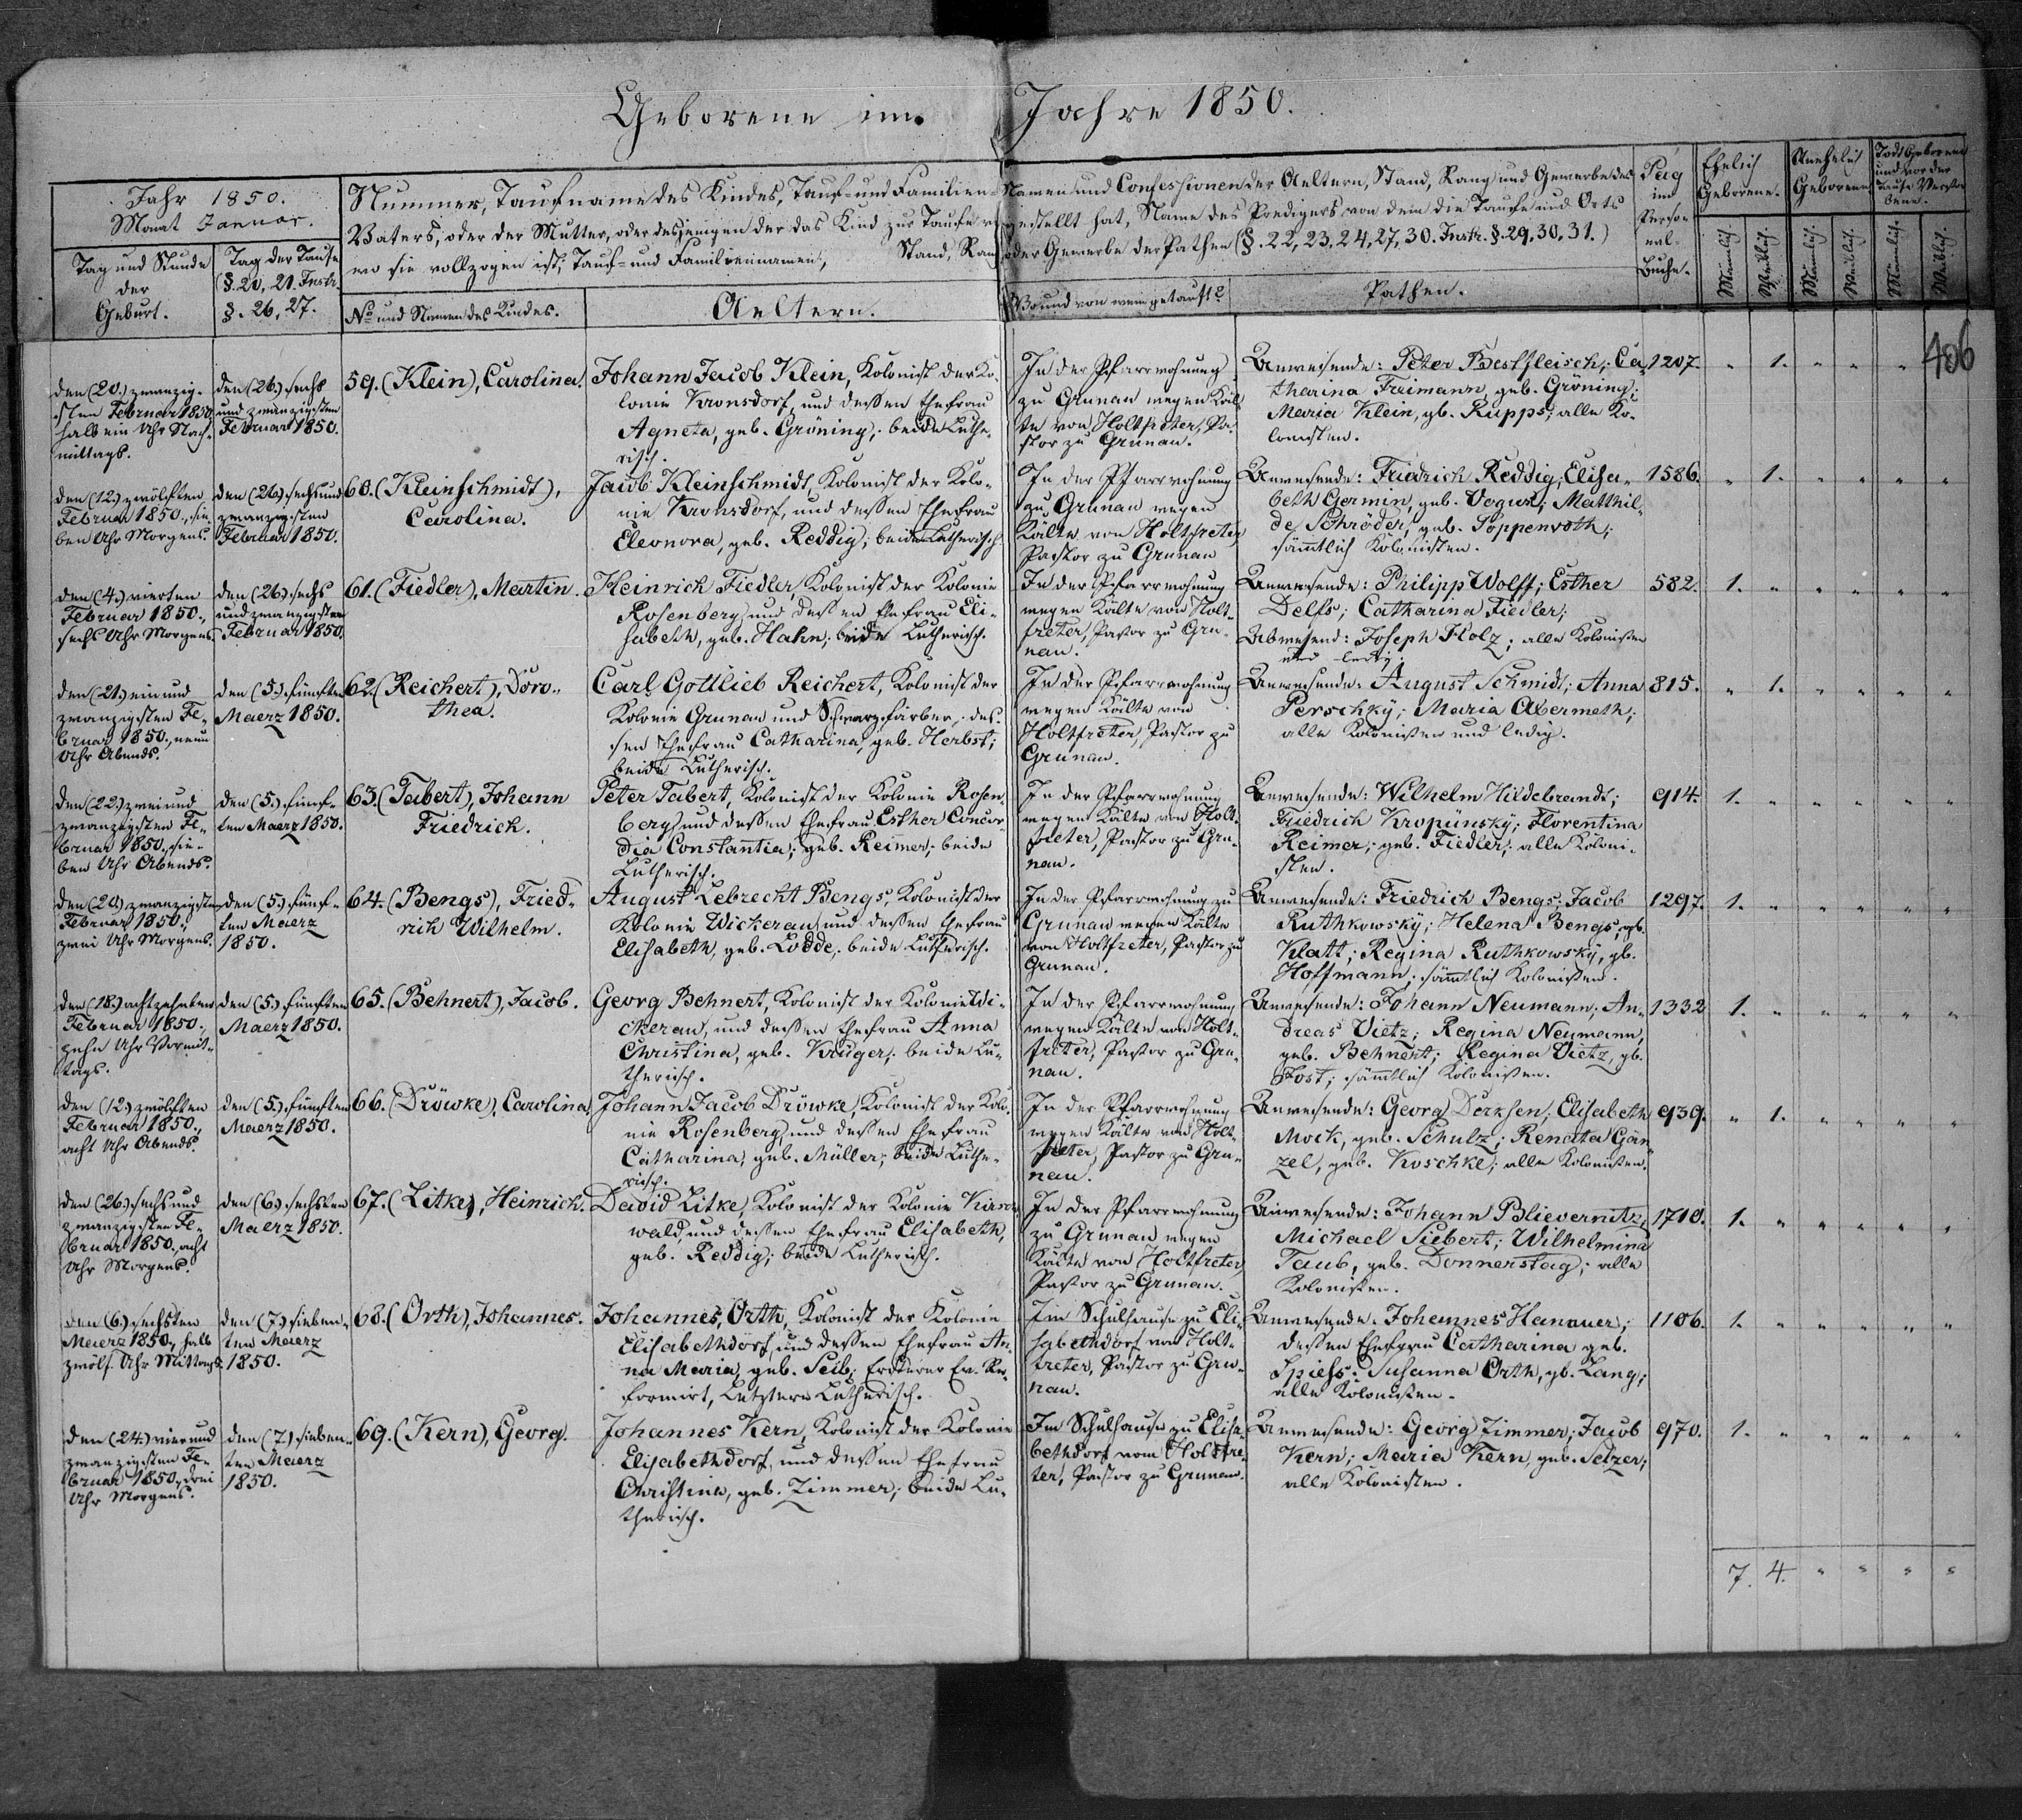 Geborene im Jahre 1850.
Jahr 1850.
Monat Januar.
Tag und Stunde
der
Geburt.
Tag der Taufe
(§. 20, 21. Instr.
§. 26, 27.
Nummer, Taufname des Kindes, Tauf- und Familien-Namen und Confessionen der Aeltern, Stand, Rang und Gewerbe des
Vaters, oder der Mutter, oder desjenigen der das Kind zur Taufe vorgestellt hat, Name des Predigers von dem die Taufe und Orts
wo sie vollzogen ist; Tauf- und Familiennamen, Stand, Rang oder Gewerbe der Pathen (§. 22, 23, 24, 27, 30. Instr. §. 29, 30, 31.)
No und Namen des Kindes.
Aeltern.
Wo und von wem getauft?
Pathen.
Pag
im
Perso-
nal-
Buche.
Ehelich
Geborene.
Unehelich
Geborene
Todt Geborene
und vor der
Taufe Verstor
bene.
Männlich.
Weiblich.
Männlich.
Weiblich.
Männlich.
Weiblich.
406
den (20.) zwanzig-
sten Februar 1850
halb ein Uhr Nach-
mittags.
den (26.) sechs
und zwanzigsten
Februar 1850.
59. (Klein), Carolina.
Johann Jacob Klein, Kolonist der Ko-
lonie Kronsdorf, und dessen Ehefrau
Agneta, geb. Gröning; beide Luthe-
risch.
In der Pfarrwohnung
zu Grunau wegen Käl-
te von Holtfreter, Pa-
stor zu Grunau.
Anwesende: Peter Bestfleisch; Ca-
tharina Freimann, geb. Gröning;
Maria Klein, gb. Rupps; alle Ko-
lonisten.
1207. " 1. " " "
den (12.) zwölften
Februar 1850., sie-
ben Uhr Morgens.
den (26.) sechsund
zwanzigsten
Februar 1850.
60. (Kleinschmidt),
Carolina.
Jacob Kleinschmidt, Kolonist der Kolo-
nie Kronsdorf, und dessen Ehefrau
Eleonora, geb. Reddig; beide Lutherisch
In der Pfarrwohnung
zu Grunau wegen
Kälte von Holtfreter
Pastor zu Grunau
Anwesende: Friedrich Reddig; Elisa-
beth Germin, geb. Vogun; Matthil-
de Schröder, geb. Poppenroth;
sämmtlich Kolonisten.
1586. " 1. " " " "
den (4.) vierten
Februar 1850.,
sechs Uhr Morgens
den (26.) sechs
und zwanzigsten
Februar 1850.
61. (Fiedler), Martin.
Heinrich Fiedler, Kolonist der Kolonie
Rosenberg, und dessen Ehefrau Eli-
sabeth, geb. Hahn; beide Lutherisch.
In der Pfarrwohnung
wegen Kälte von Holt-
freter, Pastor zu Gru-
nau.
Anwesende: Philipp Wolff; Esther
Delfs; Catharina Fiedler;
Abwesend: Joseph Holz; alle Kolonisten
und ledig.
582. 1. " " " " "
den (21.) ein und
zwanzigsten Fe-
bruar 1850., neun
Uhr Abends.
den (5.) fünften
Maerz 1850.
62. (Reichert), Doro-
thea.
Carl Gottlieb Reichert, Kolonist der
Kolonie Grunau und Schwarzfärber, des-
sen Ehefrau Catharina, geb. Herbst;
beide Lutherisch.
In der Pfarrwohnung
wegen Kälte von
Holtfreter, Pastor zu
Grunau.
Anwesende: August Schmidt; Anna
Perschky; Maria Abermeth;
alle Kolonisten und ledig.
815. " 1. " " " "
den (22.) zwei und
zwanzigsten Fe-
bruar 1850., sie-
ben Uhr Abends.
den (5.) fünf-
ten Maerz 1850.
63. (Tabert), Johann
Friedrich.
Peter Tabert, Kolonist der Kolonie Rosen-
berg, und dessen Ehefrau Esther Concor-
dia Constantia, geb. Reimer; beide
Lutherisch.
In der Pfarrwohnung
wegen Kälte von Holt-
freter, Pastor zu Gru-
nau.
Anwesende: Wilhelm Hildebrandt;
Friedrich Kropinsky; Florentina
Reimer, geb. Fiedler; alle Koloni-
sten.
914. 1. " " " " "
den (20.) zwanzigsten
Februar 1850.,
zwei Uhr Morgens.
den (5.) fünf-
ten Maerz
1850.
64. (Bengs), Fried-
rich Wilhelm.
August Lebrecht Bengs, Kolonist der
Kolonie Wickerau, und dessen Ehefrau
Elisabeth, geb. Lodde; beide Lutherisch.
In der Pfarrwohnung zu
Grunau wegen Kälte
von Holtfreter, Pastor zu
Grunau.
Anwesende: Friedrich Bengs; Jacob
Ruthkowsky; Helena Bengs, gb.
Klatt; Regina Ruthkowsky, gb.
Hoffmann; sämmtlich Kolonisten.
1297. 1. " " " " "
den (18.) achtzehnten
Februar 1850.,
zehn Uhr Vormit-
tags.
den (5.) fünften
Maerz 1850.
65. (Behnert), Jacob.
Georg Behnert, Kolonist der Kolonie Wi-
ckerau, und dessen Ehefrau Anna
Christina, geb. Krüger; beide Lu-
therisch.
In der Pfarrwohnung
wegen Kälte von Holt-
freter, Pastor zu Gru-
nau.
Anwesende: Johann Neumann; An-
dreas Vietz; Regina Neumann,
geb. Behnert; Regina Vietz, gb.
Jost; sämmtlich Kolonisten.
1332 1. " " " " "
den (12.) zwölften
Februar 1850.,
acht Uhr Abends.
den (5.) fünften
Maerz 1850.
66. (Dröwke), Carolina
Johann Jacob Dröwke, Kolonist der Kolo-
nie Rosenberg, und dessen Ehefrau
Catharina, geb. Müller; beide Luthe-
risch.
In der Pfarrwohnung
wegen Kälte von Holt-
freter, Pastor zu Gru-
nau.
Anwesende: Georg Dörksen; Elisabeth
Mock, geb. Schulz; Renata Gän-
zel, geb. Koschke; alle Kolonisten.
939. " 1. " " " "
den (26.) sechs und
zwanzigsten Fe-
bruar 1850., acht
Uhr Morgens.
den (6.) sechsten
Maerz 1850.
67. (Litke), Heinrich.
David Litke, Kolonist der Kolonie Kirsch
wald, und dessen Ehefrau Elisabeth,
geb. Reddig; beide Lutherisch.
In der Pfarrwohnung
zu Grunau wegen
Kälte von Holtfreter,
Pastor zu Grunau.
Anwesende: Johann Blievernitz,
Michael Siebert; Wilhelmina
Taub, geb. Donnerstag; alle
Kolonisten.
1710. 1. " " " " "
den (6.) sechsten
Maerz 1850., halb
zwölf Uhr Mittags
den (7.) sieben-
ten Maerz
1850.
68. (Orth), Johannes.
Johannes Orth, Kolonist der Kolonie
Elisabethdorf, und dessen Ehefrau An-
na Maria, geb. Seib; Ersterer Ev. Re-
formirt, Letztere Lutherisch.
Im Schulhause zu Eli-
sabethdorf von Holt-
freter, Pastor zu Gru-
nau.
Anwesende: Johannes Hanauer;
dessen Ehefrau Catharina geb.
Spiess; Susanna Orth, gb. Lang;
alle Kolonisten.
1106. 1. " " " " "
den (24.) vier und
zwanzigsten Fe-
bruar 1850., drei
Uhr Morgens.
den (7.) sieben-
ten Maerz
1850.
69. (Kern), Georg.
Johannes Kern, Kolonist der Kolonie
Elisabethdorf, und dessen Ehefrau
Christina, geb. Zimmer; beide Lu-
therisch.
Im Schulhause zu Elisa-
bethdorf vom Holtfre-
ter, Pastor zu Grunau.
Anwesende: Georg Zimmer; Jacob
Kern; Maria Kern, geb. Selzer;
alle Kolonisten.
970. 1. " " " " "
7. 4. " " " "